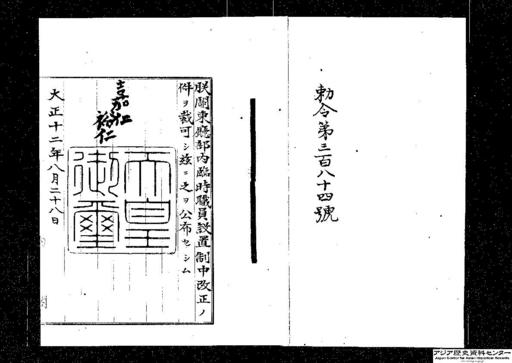 勅令第三百八十四號
朕關東廳部内臨時職員設置制中改正ノ
件ヲ裁可シ玆ニ之ヲ公布セシム
嘉仁
裕仁
天皇
御璽
大正十二年八月二十八日
アジア歴史資料センター
Japan Center for Asian Historical Records